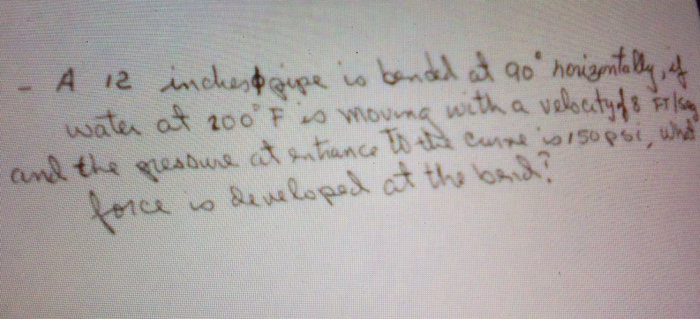 - A 12 inches ϕ pipe is bended at 90° horizontally, if
water at 200°F is moving with a velocity of 8 FT/seg
and the pressure at entrance to the curve is 150 psi, what
force is developed at the bend?